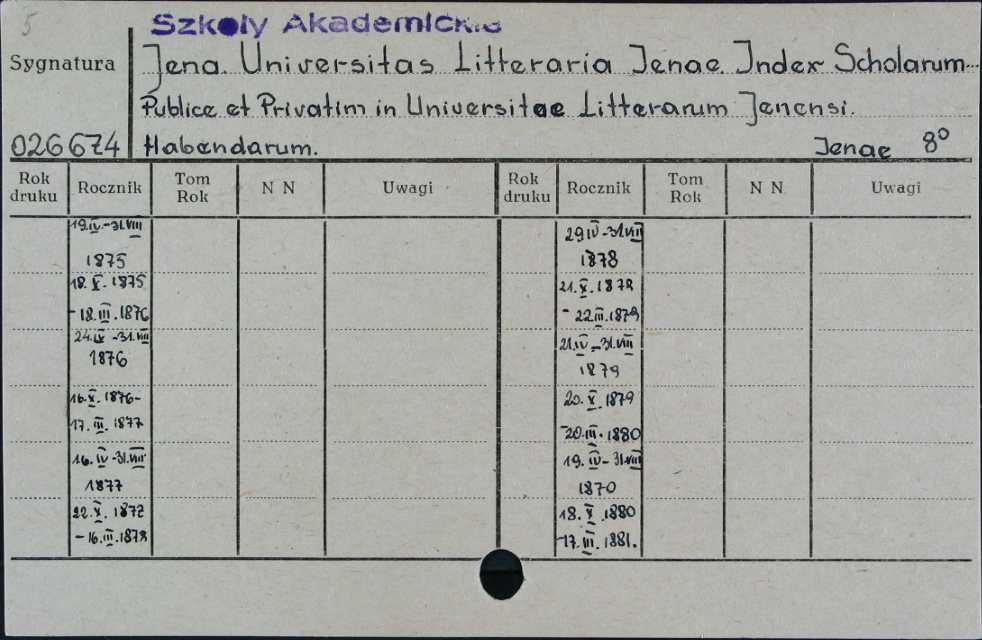 5
Szkoły Akademickie
Sygnatura
Jena. Universitas Litteraria Jenae. Index Scholarum...
Publice et Privatim in Universitae Litterarum Jenensi.
026674 Habendarum. Jenae 8°
Rok druku Rocznik Tom Rok N N Uwagi Rok druku Rocznik Tom Rok N N Uwagi
19.IV.-31.VIII
1875
18.X.1875
-18.III.1876
24.IV-31.VIII
1876
16.X.1876-
17.III.1877
16.IV-31.VIII
1877
22.X.1877
-16.III.1878
29.IV-31.VIII
1878
21.X.1878
-22.III.1879
21.IV-31.VIII
1879
20.X.1879
-20.III.1880
19.IV-31.VIII
1870
18.X.1880
-17.III.1881.